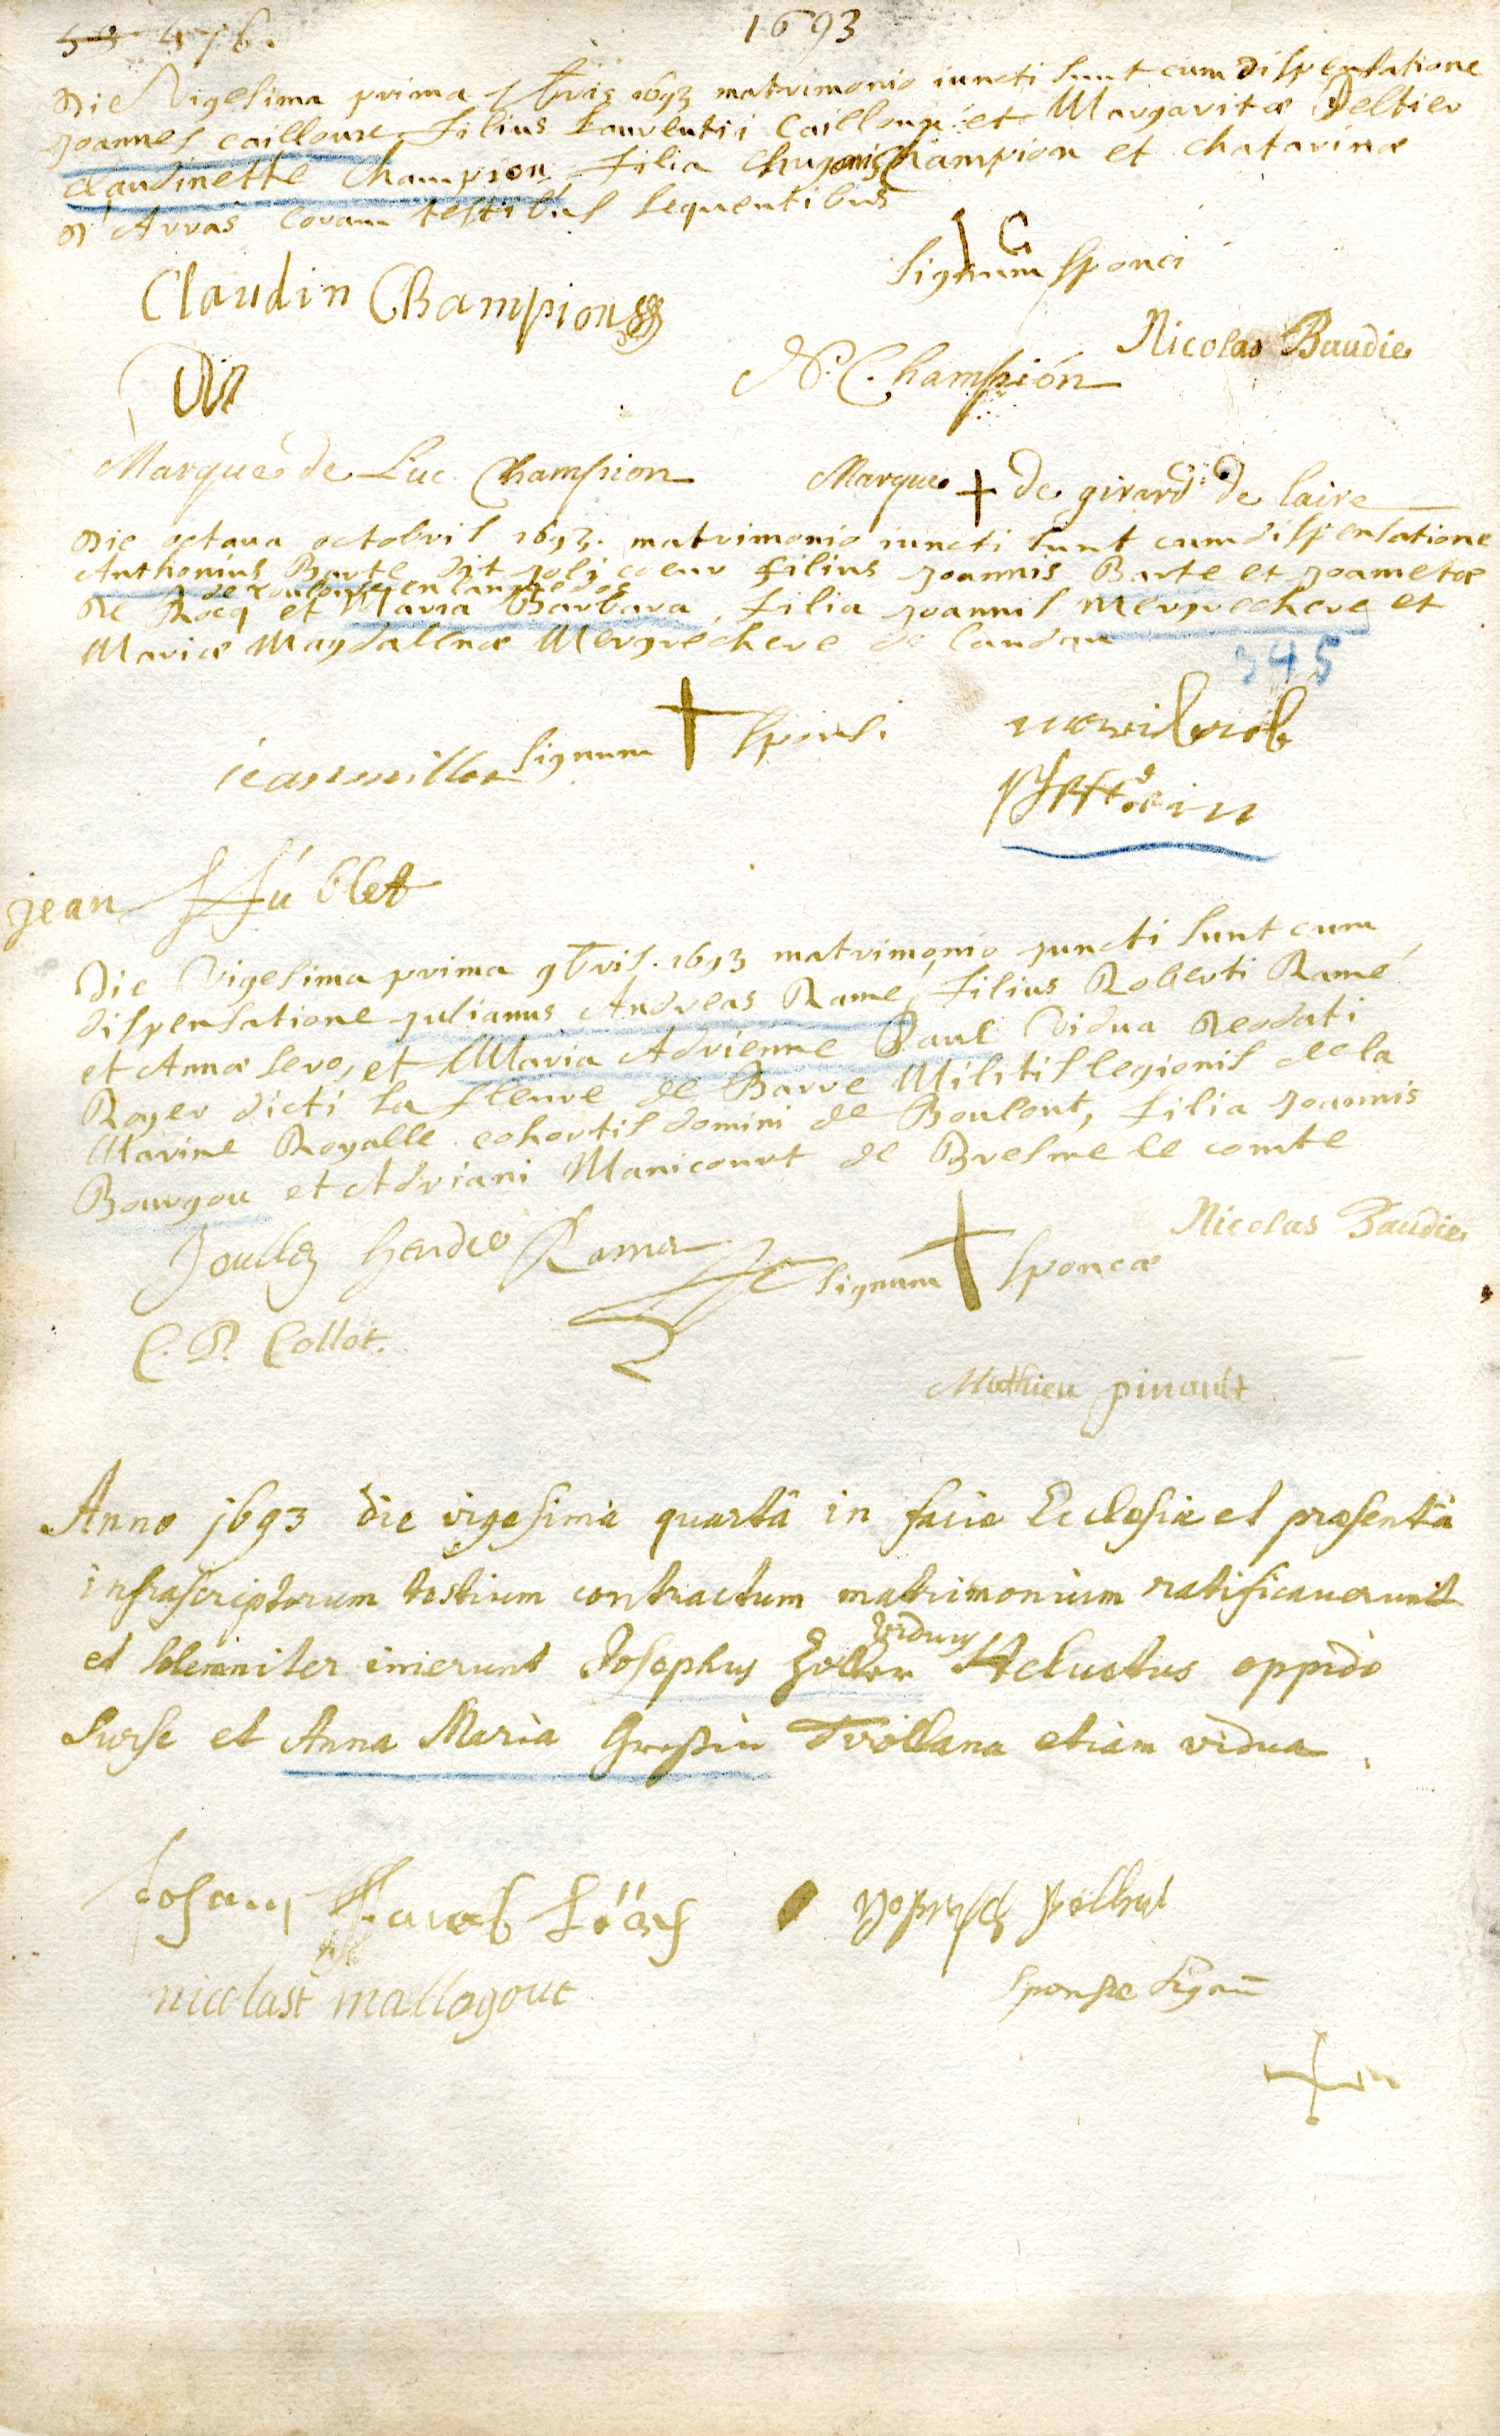 476.
1693
Die Vigesima prima 7bris 1693 matrimonio iuncti sunt cum dispensatione
Joannes Cailloux filius Laurentii Cailloux et Margaritæ Peltier
Claudinette Champion filia Champion et Chatarinæ
d'Arras Coram testibus sequentibus
IC
Signum sponci
Claudin Champion
Nicolas Baudie
N. Champion
Marque de Luc Champion
Marque + de girard de laire
Die octaua octobris 1693. matrimonio iuncti sunt cum dispensatione
Anthonius Barte dit Joli coeur filius Joannis Barte et Joametæ
de toulouse en languedoc
de Rocq et Maria Barbara filia Joannis Mergrechere et
Mariæ Magdalenæ Mergrechere de landau
345
Signum + sponsi
jean
Die Vigesima prima 9bris. 1693 matrimonio juncti sunt cum
dispensatione Julianus Andreas Ramé, filius Roberti Ramé
et Annæ sero, et Maria Adrienne Paul Vidua Deodati
Royer dicti la fleure de Barre Militis legionis de la
Marine Royalle cohortis domini de Boulont, filia Joannis
Bourgou et Adriani Manicourt de Bresme le comte
Nicolas Baudie
Signum + sponcæ
C. D. Collot.
Mathieu pinault
Anno 1693 die vigesima quarta in facie Ecclesiæ et præsentia
infrascriptorum testium contractum matrimonium ratificauerunt
viduus
et solemniter inierunt Josephus Zoller Heluetus oppido
Surse et Anna Maria Tirollana etiam vidua.
nicolast mallogout
Sponsæ Signū
+